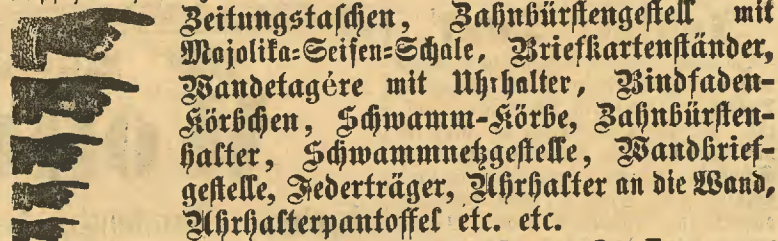 Zeitungstaschen, Zahnbürstengestell mit
Majolika-Seifen-Schale, Briefkartenständer,
Wandetagère mit Uhrhalter, Bindfaden-
Körbchen, Schwamm-Körbe, Zahnbürsten-
halter, Schwammnetzgestelle, Wandbrief-
gestelle, Federträger, Uhrhalter an die Wand,
Uhrhalterpantoffel etc. etc.